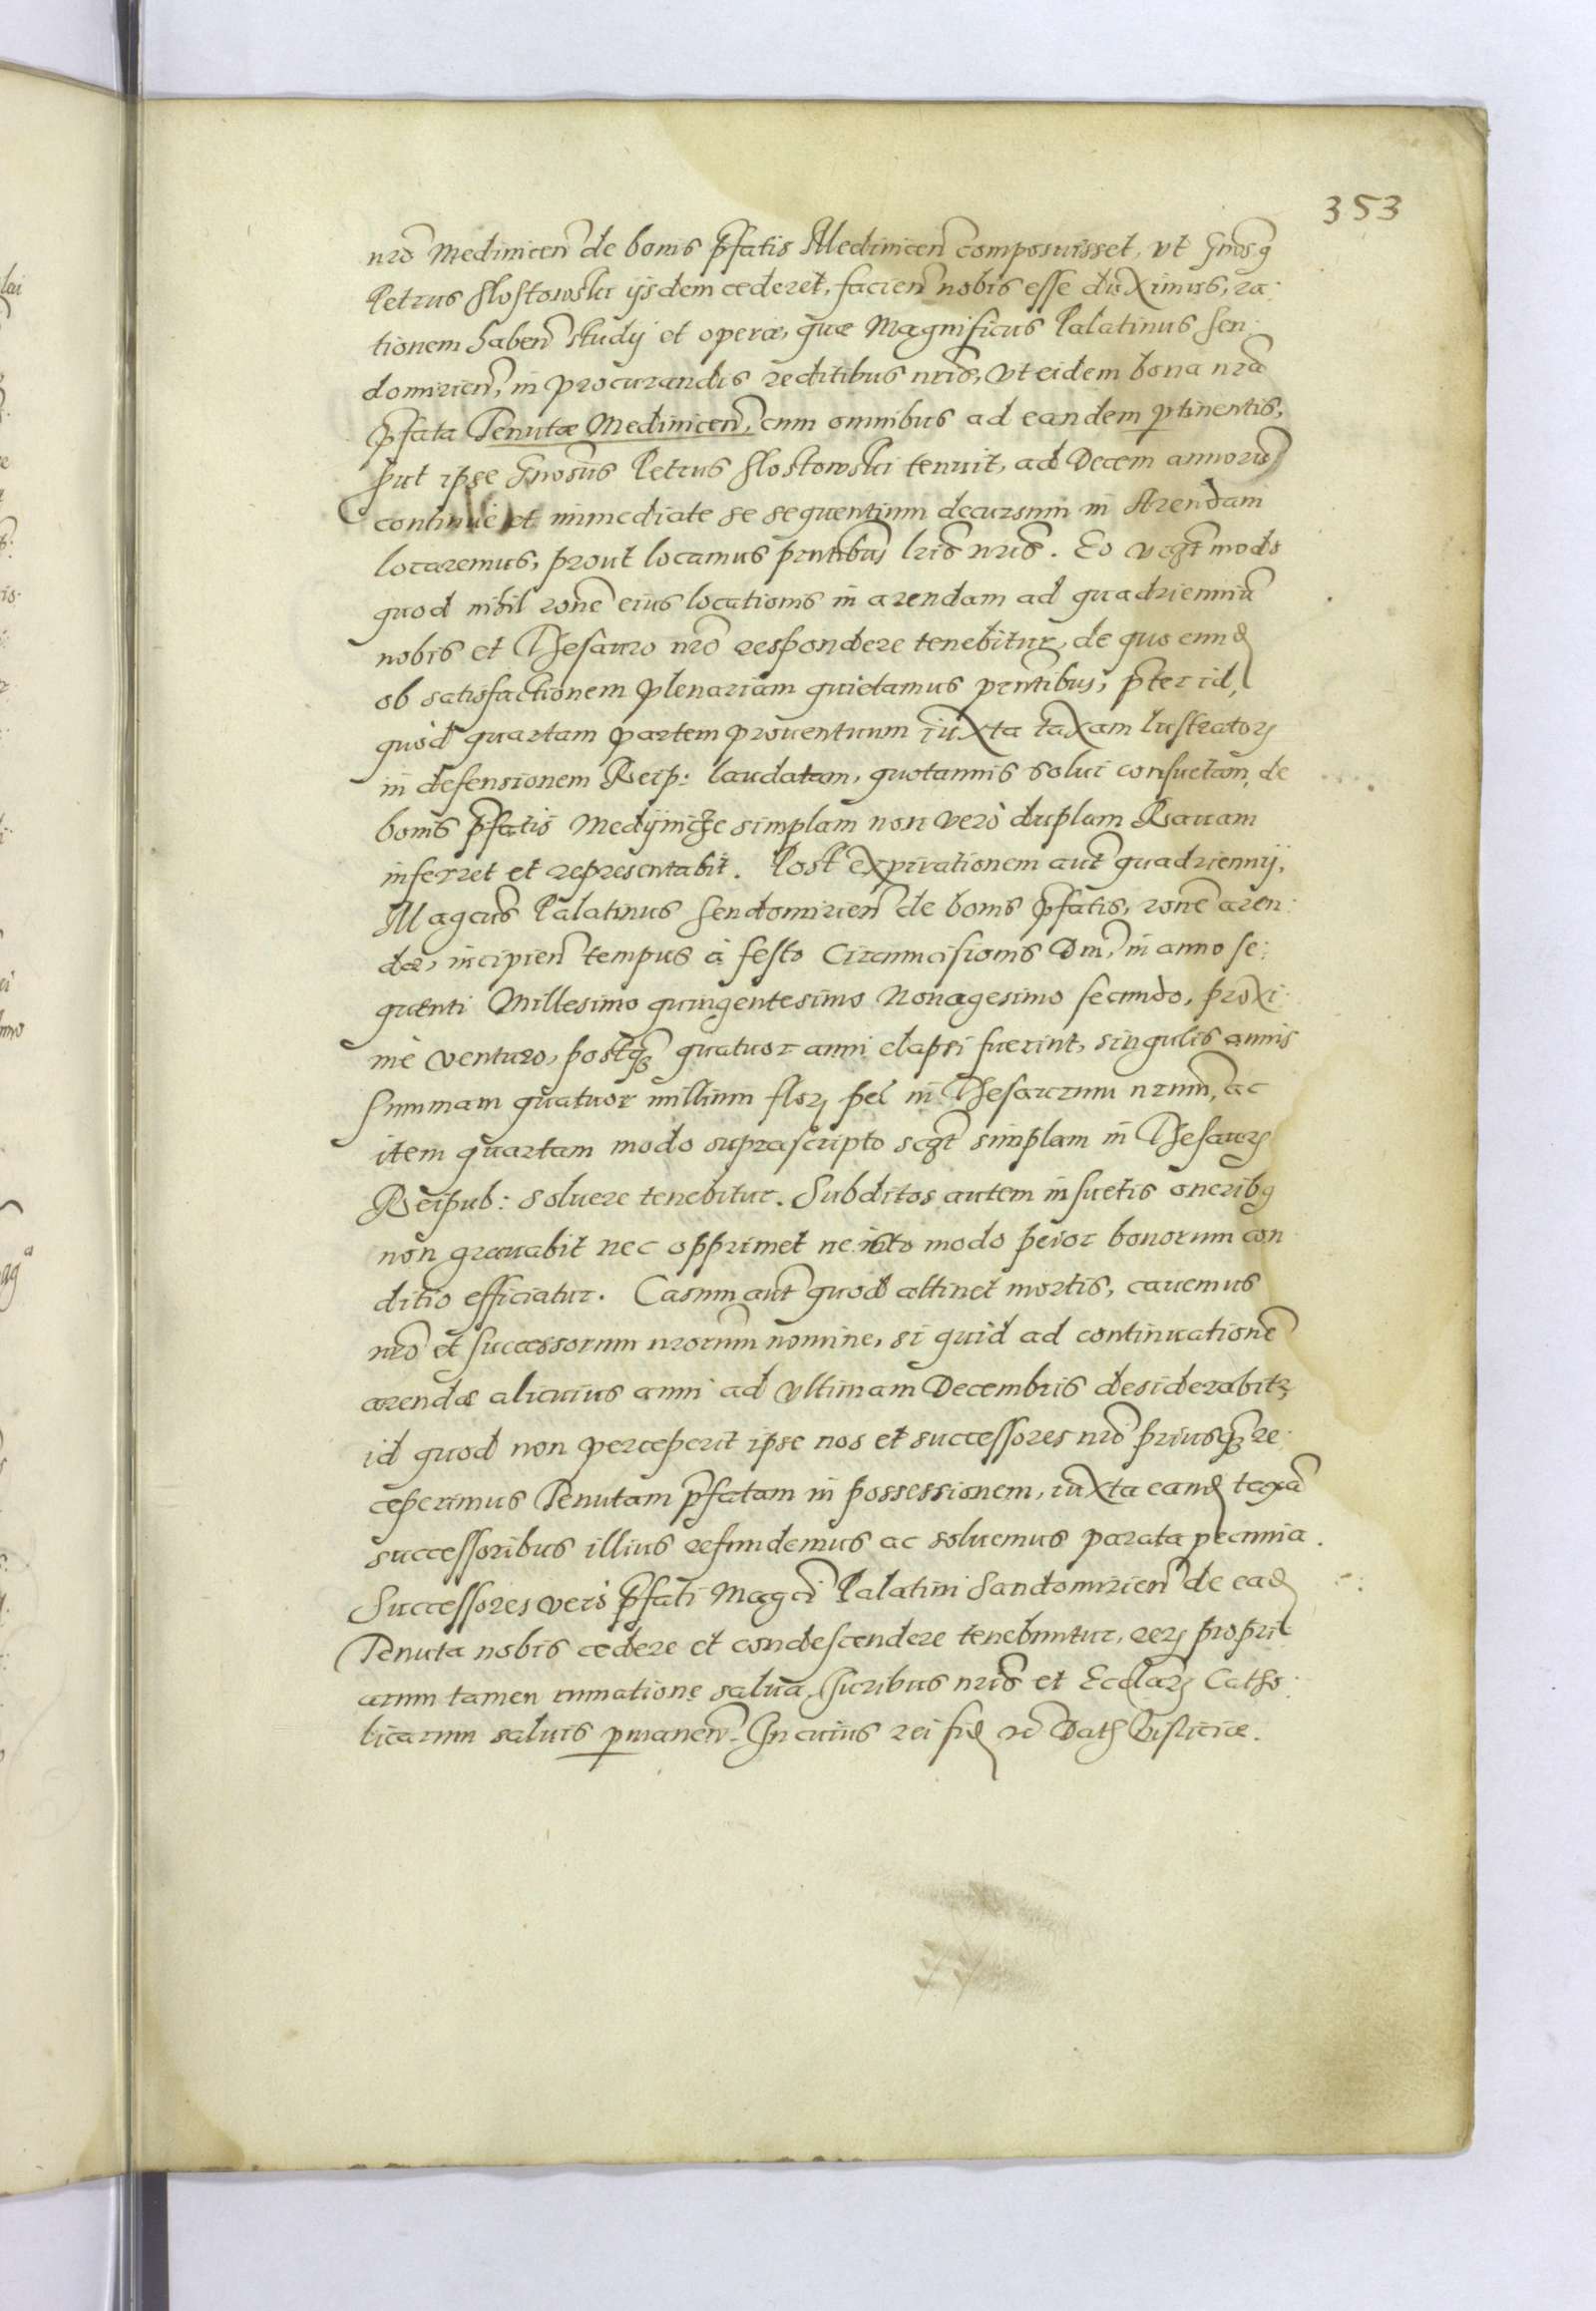 353
nrõ Medinicen̄ de bonis p̄fatis Medinicen̄ composuisset, vt Gn̄osq
Petrus Slostowski ijsdem cederet, facien̄ nobis esse duximus, ra:
tionem haben̄ studij et operæ, quæ Magnificus Palatinus Sen:
domirien̄, in procurandis reditibus nrĩs, vt eidem bona nrã
p̄fata Tenutæ Medinicen̄, cum omnibus ad eandem ptinentis,
put ipse Gn̄osus Petrus Slostowski tenuit, ad Decem annorũ
continue et immediate se sequentium decursum in Arendam
locaremus, prout locamus pn̄tibus lrĩs nrĩs. Eo modo
quod nihil rone eius locationis in arendam ad quadrienniũ
nobis et Thesauro nrõ respondere tenebitur, de quo eund
ob satisfactionem plenariam quietamus pn̄tibus, p̄ter id,
quòd quartam partem prouentuum iuxta taxam lustratorꝝ
in defensionem Reip: laudatam, quotannis solui consuetam, de
bonis p̄fatis Medijnicze simplam non verò duplam Rauam
inferret et representabit. Post expirationem aut̄ quadriennij,
Magcũs Palatinus Sendomirien̄ de bonis p̄fatis, rone aren:
dæ, incipien̄ tempus à festo Circumcisionis Dnĩ, in anno se:
quenti Millesimo quingentesimo Nonagesimo secundo, proxi:
mè venturo, postq̃ quatuor anni elapsi fuerint, singulis annis
summam quatuor millium florꝝ pel in Thesaurum nrum̄, ac
item quartam modo suprascripto simplam in Thesaurꝝ
Reipub: soluere tenebitur. Subditos autem insuetis oneribq
non grauabit nec opprimet ne isto modo peior bonorum con
ditio efficiatur. Casum aut̄ quod attinet mortis, cauemus
nrõ et successorum nrorum̄ nomine, si quid ad continuationē
arendæ alicuius anni ad vltimam Decembris desiderabitr,
id quod non perceperit ipse nos et successores nrĩ priusq̃ re
ceperimus Tenutam p̄fatam in possessionem, iuxta eand taxã
successoribus illius refundemus ac soluemus parata pecunia.
Successores verò p̄fati Magcĩ Palatini Sandomirien̄ de ead
Tenuta nobis cedere et condescendere tenebuntur, rerꝝ propri
arum tamen salua, Juribus nrĩs et Ecclarꝝ Catho:
licarum saluis pmanen̄. In cuius rei fid rc̄ Datꝝ Visliciæ.